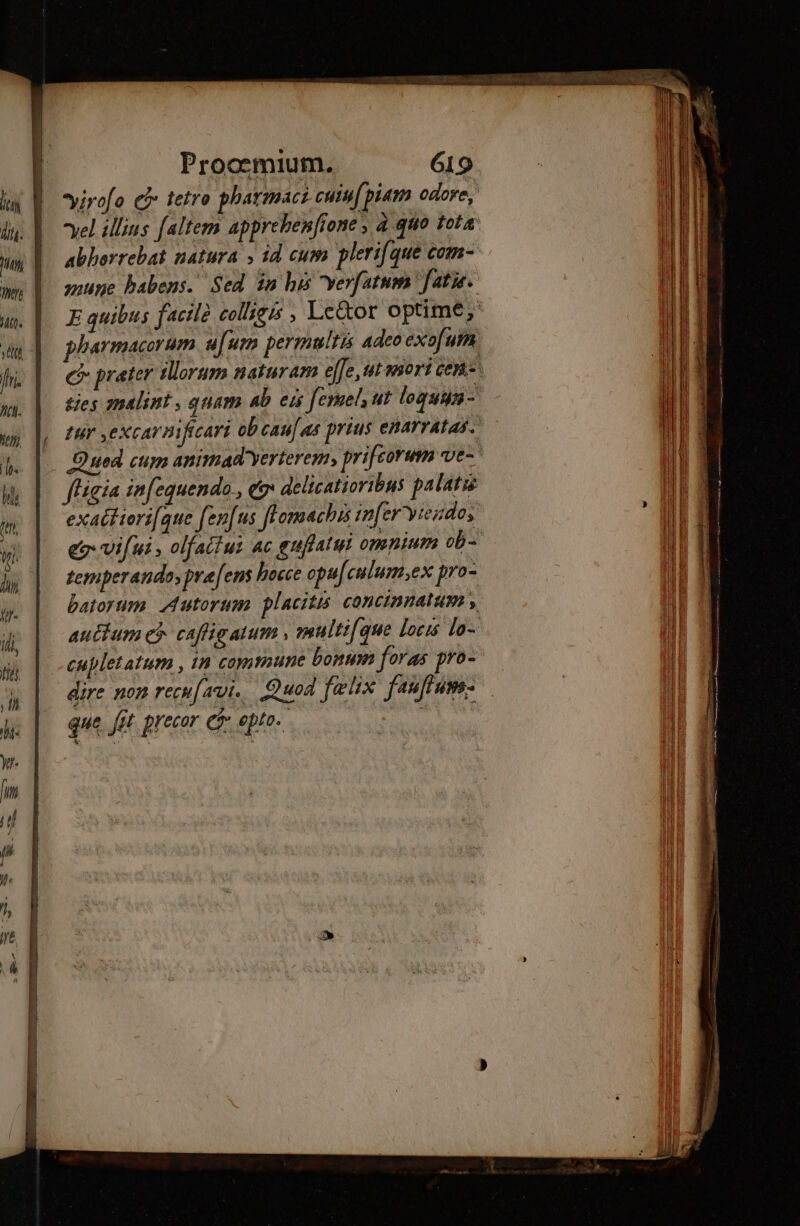 Proœmium. 619
viroſo & tetro pharmaci cuiuſpiam odore,
vel illius ſaltem apprehenſione, à quo tota
abhorrebat natura, id cum pleriſque com-
mune habens. Sed in his verſatum ſatis.
E quibus facilè colligis, Lector optime,
pharmacorum uſum permultis adeo exoſum
& præter illorum naturam eſſe, ut mori cen-
ties malint, quam ab eis ſemel, ut loquun-
tur, excarnificari ob cauſas prius enarratas.
Quod cum animadverterem, priſcorum ve-
ſtigia inſequendo, & delicatioribus palatis
exactioriſque ſenſus ſtomachis inſerviendo,
& viſui, olfactui ac guſtatui omnium ob-
temperando, præſens hocce opuſculum, ex pro-
batorum Autorum placitis concinnatum,
auctum & caſtigatum, multiſque locis lo-
cupletatum, in commune bonum foras pro-
dire non recuſavi. Quod fælix fauſtum-
que ſit precor & opto.